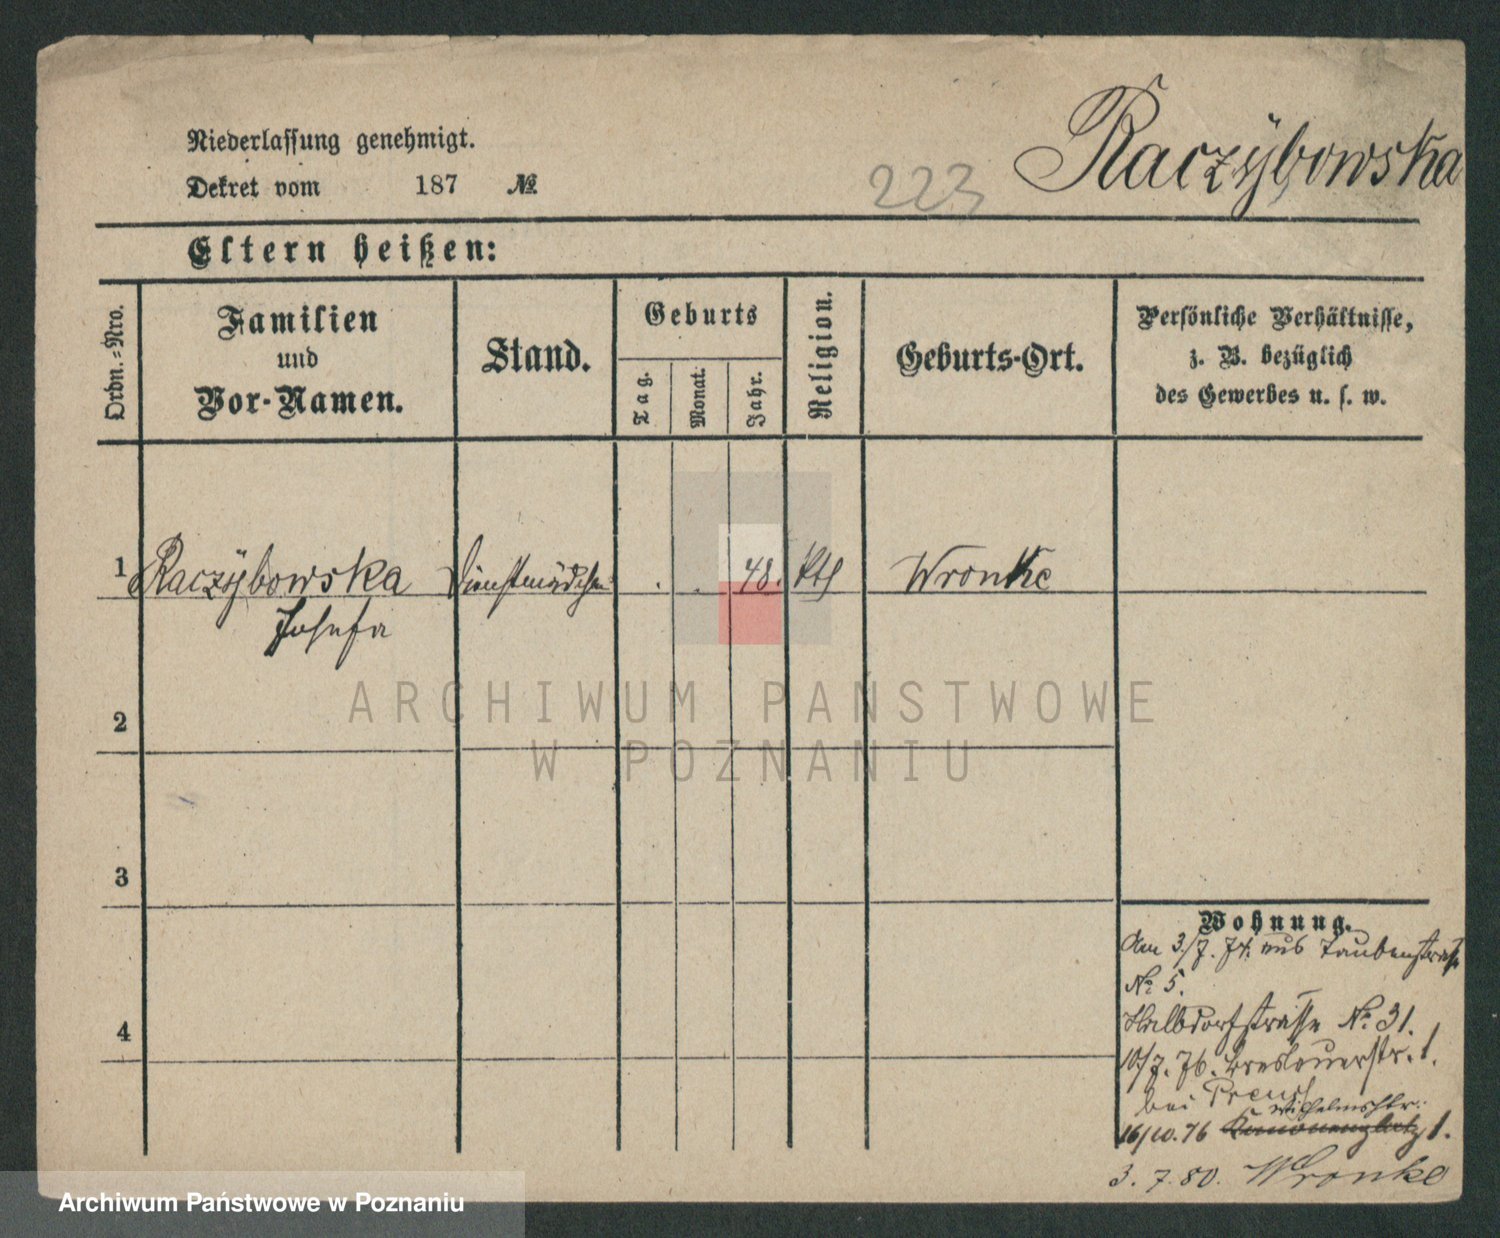 Raczÿbowska
Niederlassung genehmigt.
Dekret vom 187 № 223
Eltern heißen:
Ordn.-Nro.
Familien
und
Vor-Namen.
Stand.
Geburts
Tag.
Monat.
Jahr.
Religion.
Geburts-Ort.
Persönliche Verhältnisse,
z. B. bezüglich
des Gewerbes u. s. w.
1 Raczÿbowska Dienstmädchen . . 48. kth Wronke
Josefa
2
3
4
ARCHIWUM PAŃSTWOWE
W POZNANIU
Wohnung.
Am 3./7. 74. aus Taubenstraße
No 5.
Halbdorfstrasse No 31.
10/7. 76. Breslauerstr. 1.
bei Preuss
Wilhelmstr:
16/10. 76 1.
3. 7. 80. Wronke
Archiwum Państwowe w Poznaniu